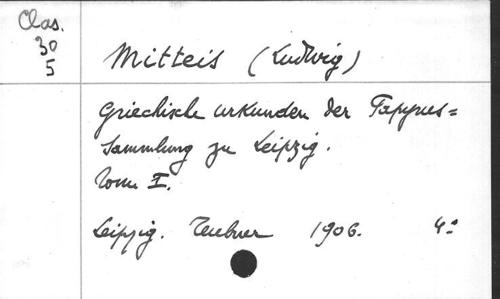 Clas.
30
5
Mitteis (Ludwig)
Griechische Urkunden der Papyrus=
Sammlung zu Leipzig.
I.
Leipzig. Teubner 1906. 4º